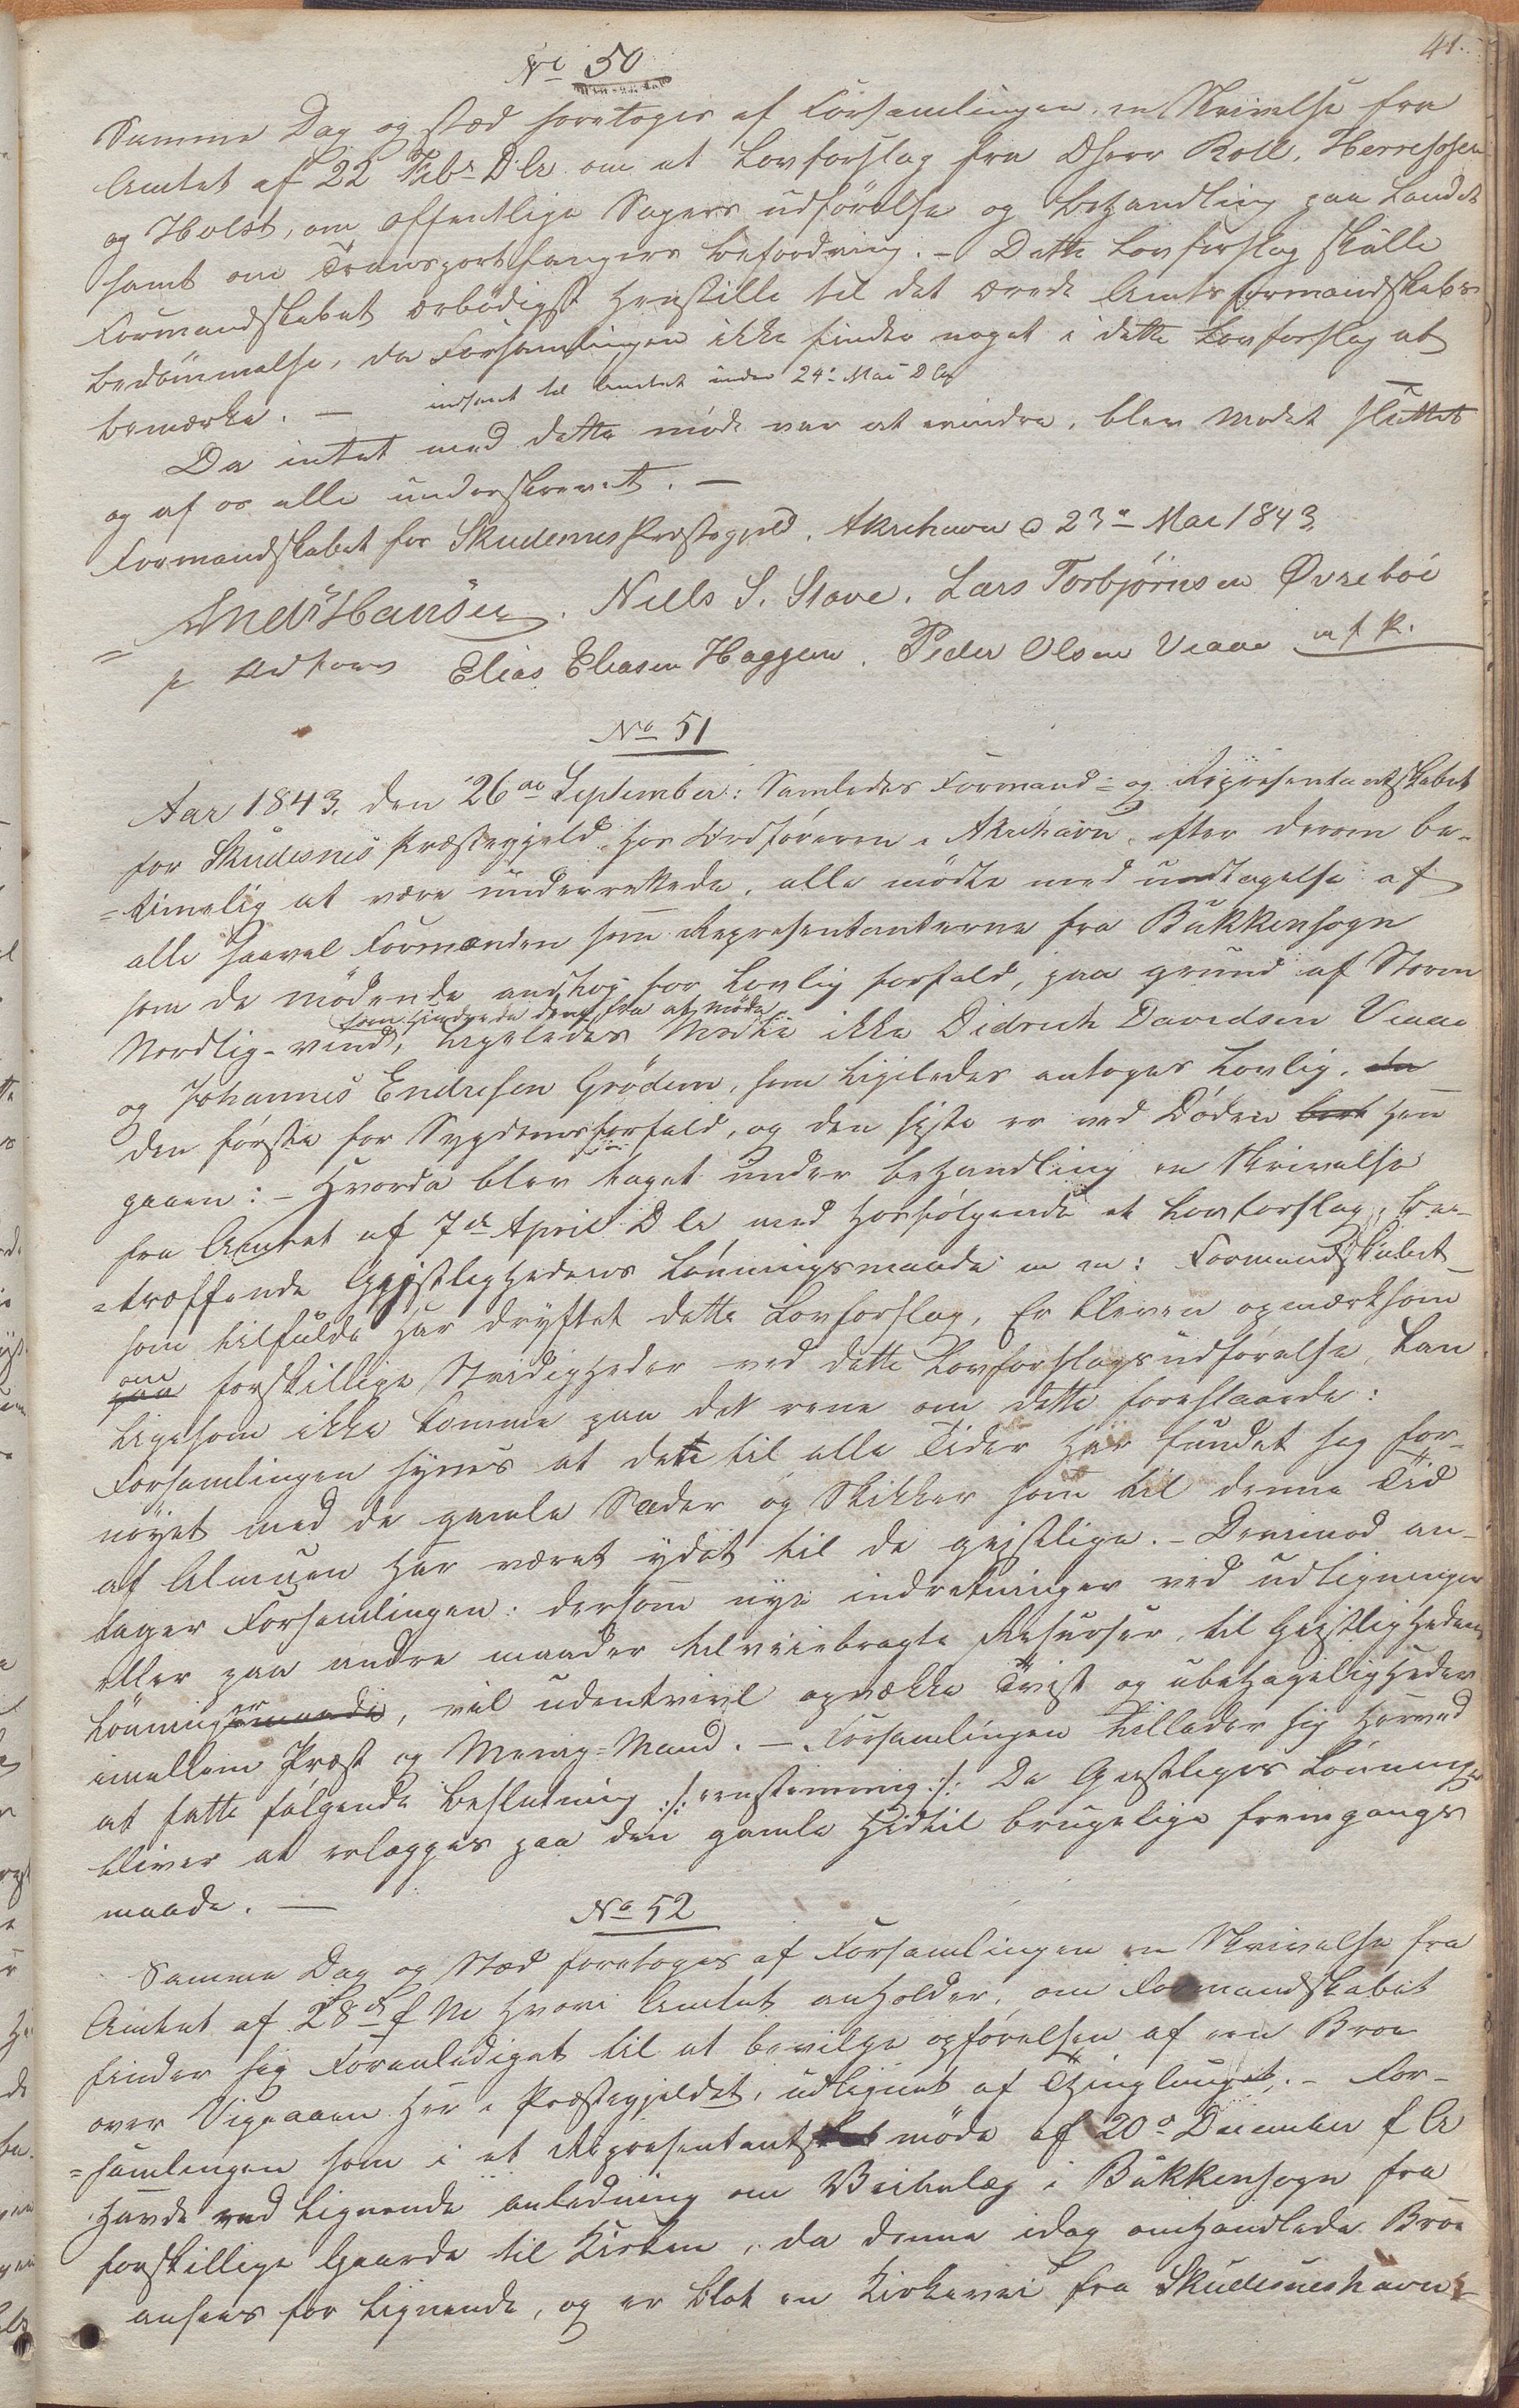 41.
No 50
Samme Dag og Stæd foretoges af Forsamlingen, en Skrivelse fra
Amtet af 22 Febr D Ar om et Lovforslag fra Dherr Roll, Herresfsen
og Holst, om offentlige Sagers udførelse og behandling paa Landet
samt om Transportfangers befordring. – Dette Lovforslag skulle
Formandskabet ærbødigst henstille til det ærede Amtsformandskabs
bedømmelse, da Forsamlingen ikke finder noget i dette Lovforslag at
bemærke. – indsent til Amtet inden 24de Mai D A
Da intet med dette møde var at erindre, blev Mødet sluttet
og af os alle underskrevet. –
Formandskabet for Skudenes Præstegjeld, Akrehavn d 23de Mai 1843
Andrs Hansen. Niels S. Stave. Lars Torbjørnsen Øvrebøe
p Ordfører Elias Eliasen Haggeen. Peder Olsen Veaae m f P.
No 51
Aar 1843, den 26de September: Samledes Formand- og Repræsentantskabet
for Skudesnes Præstegjeld hos Ordføreren i Akrehavn, efter derom be-
=timelig at være underrettede, alle mødte med undtagelse af
alle saavel Formænden som Repræsentanterne fra Bukkensogn
som de mødende andtog for Lovlig forfald, paa grund af Storm
Nordlig-vind, som hindrede dem fra at møde, ligeledes Mødte ikke Didrich Davidsen Veaae
og Johannes Endresen Grødem, som ligeledes antoges Lovlig, da
den første for Sygdomsforfald, og den siste er ved Døden bort hen
gaaen: – Hvorda blev taget under behandling en Skrivelse
fra Amtet af 7de April D A, med hosfølgende et Lovforslag, be-
=træffende Gejstlighedens Lønningsmaade m m: Formandskabet
som tilfulde har drøftet dette Lovforslag, Er bleven opmærksom
paa om forskillige Stridigheder ved dette Lovforslags udførelse, kan
ligesom ikke komme paa det rene om dette foreslaaede:
Forsamlingen synes at dette til alle Tider har fundet seg for-
nøyet med de gamle Sæder og Skikker som til denne Tid
af Almuen har været ydet til de gejstlige. – Derimod an-
tager Forsamlingen: dersom nye indretninger ved udligninger
eller paa andre maader tilveiebragte Resurser, til Geistlighedens
Lønningsmaade er, vil udentvivl opvække Tvist og ubehageligheder
imellem Præst og Menig-Mand. – Forsamlingen tillader sig herved
at fatte følgende beslutning :/: eenstemmig :/: De Geistliges Lønninger
bliver at erlægges paa den gamle hidtil brugelige fremgangs
maade. –
No 52
Samme Dag og Stæd foretoges af Forsamlingen en Skrivelse fra
Amtet af 28de f M hvori Amtet anholder, om Formandskabet
finder sig Foranlediget til at bevilge opførelsen af een Broe
over Vigeaaen her i Præstegjeldet, udlignet af Thinglauget. – For-
=samlingen som i et Repræsentantskab møde af 20de December f A
havde ved lignende anledning om Veianlæg i Bukkensogn fra
forskillige Gaarde til Kirken, da denne idag omhandlede Broe
ansees for lignende, og er blot en Kirkevei fra Skudesneshavn